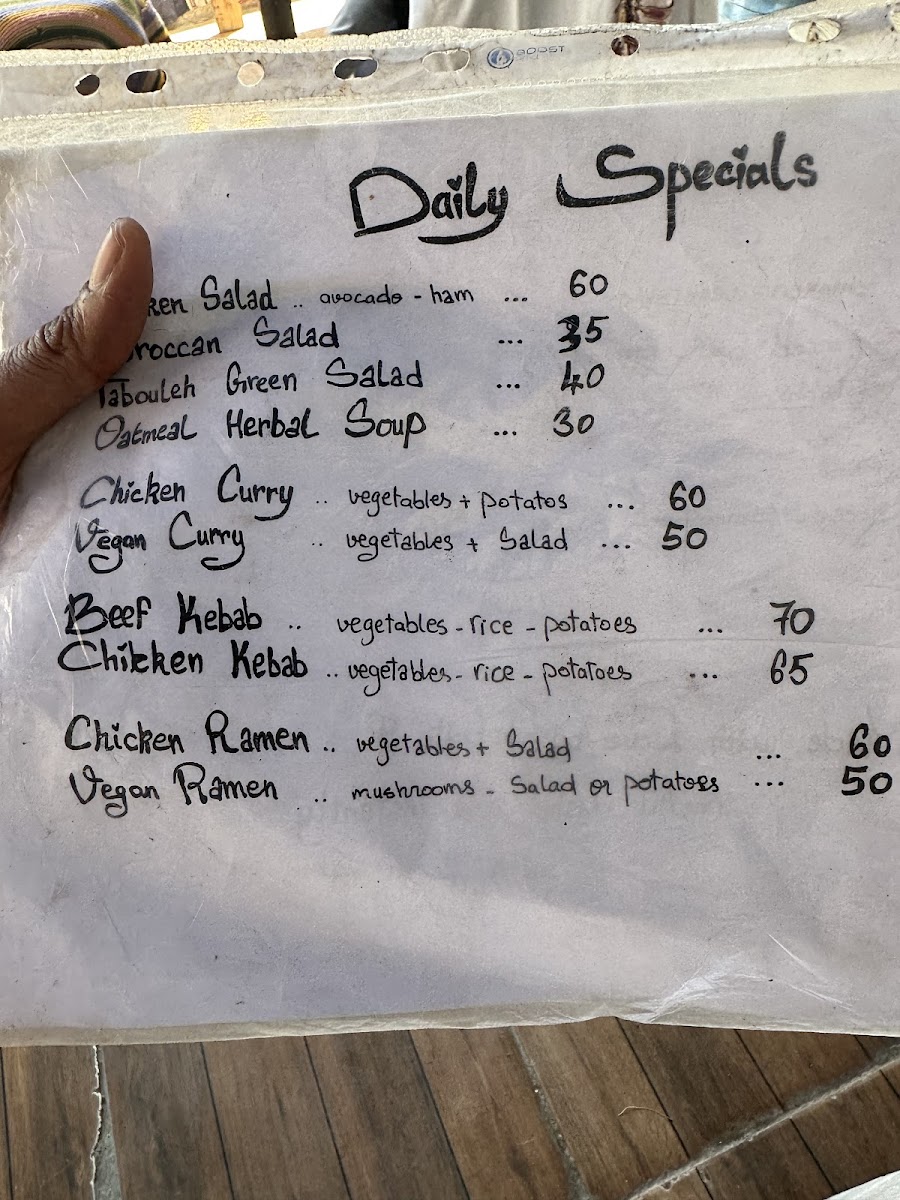 BOOST
Daily Specials
ken Salad .. avocado - ham ... 60
oroccan Salad ... 35
Tabouleh Green Salad ... 40
Oatmeal Herbal Soup ... 30
Chicken Curry .. vegetables + potatos ... 60
Vegan Curry .. vegetables + Salad ... 50
Beef Kebab .. vegetables - rice - potatoes ... 70
Chikken Kebab .. vegetables - rice - potatoes ... 65
Chicken Ramen .. vegetables + Salad ... 60
Vegan Ramen .. mushrooms - Salad or potatoes ... 50